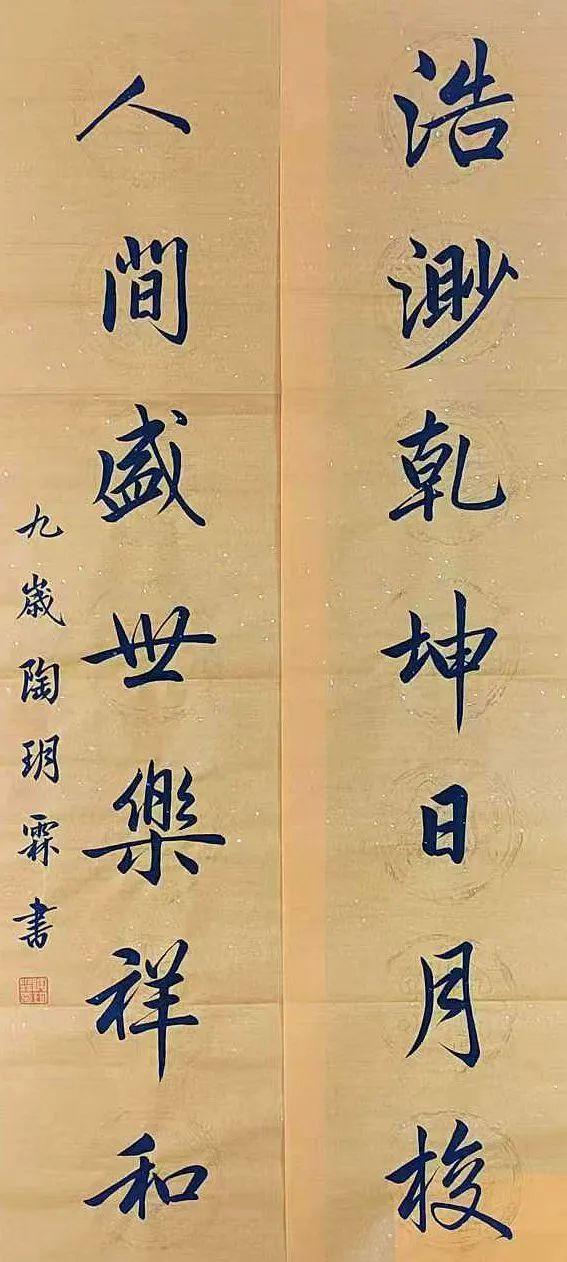 浩渺乾坤日月梭
人間盛世樂祥和
九歲陶玥霖书